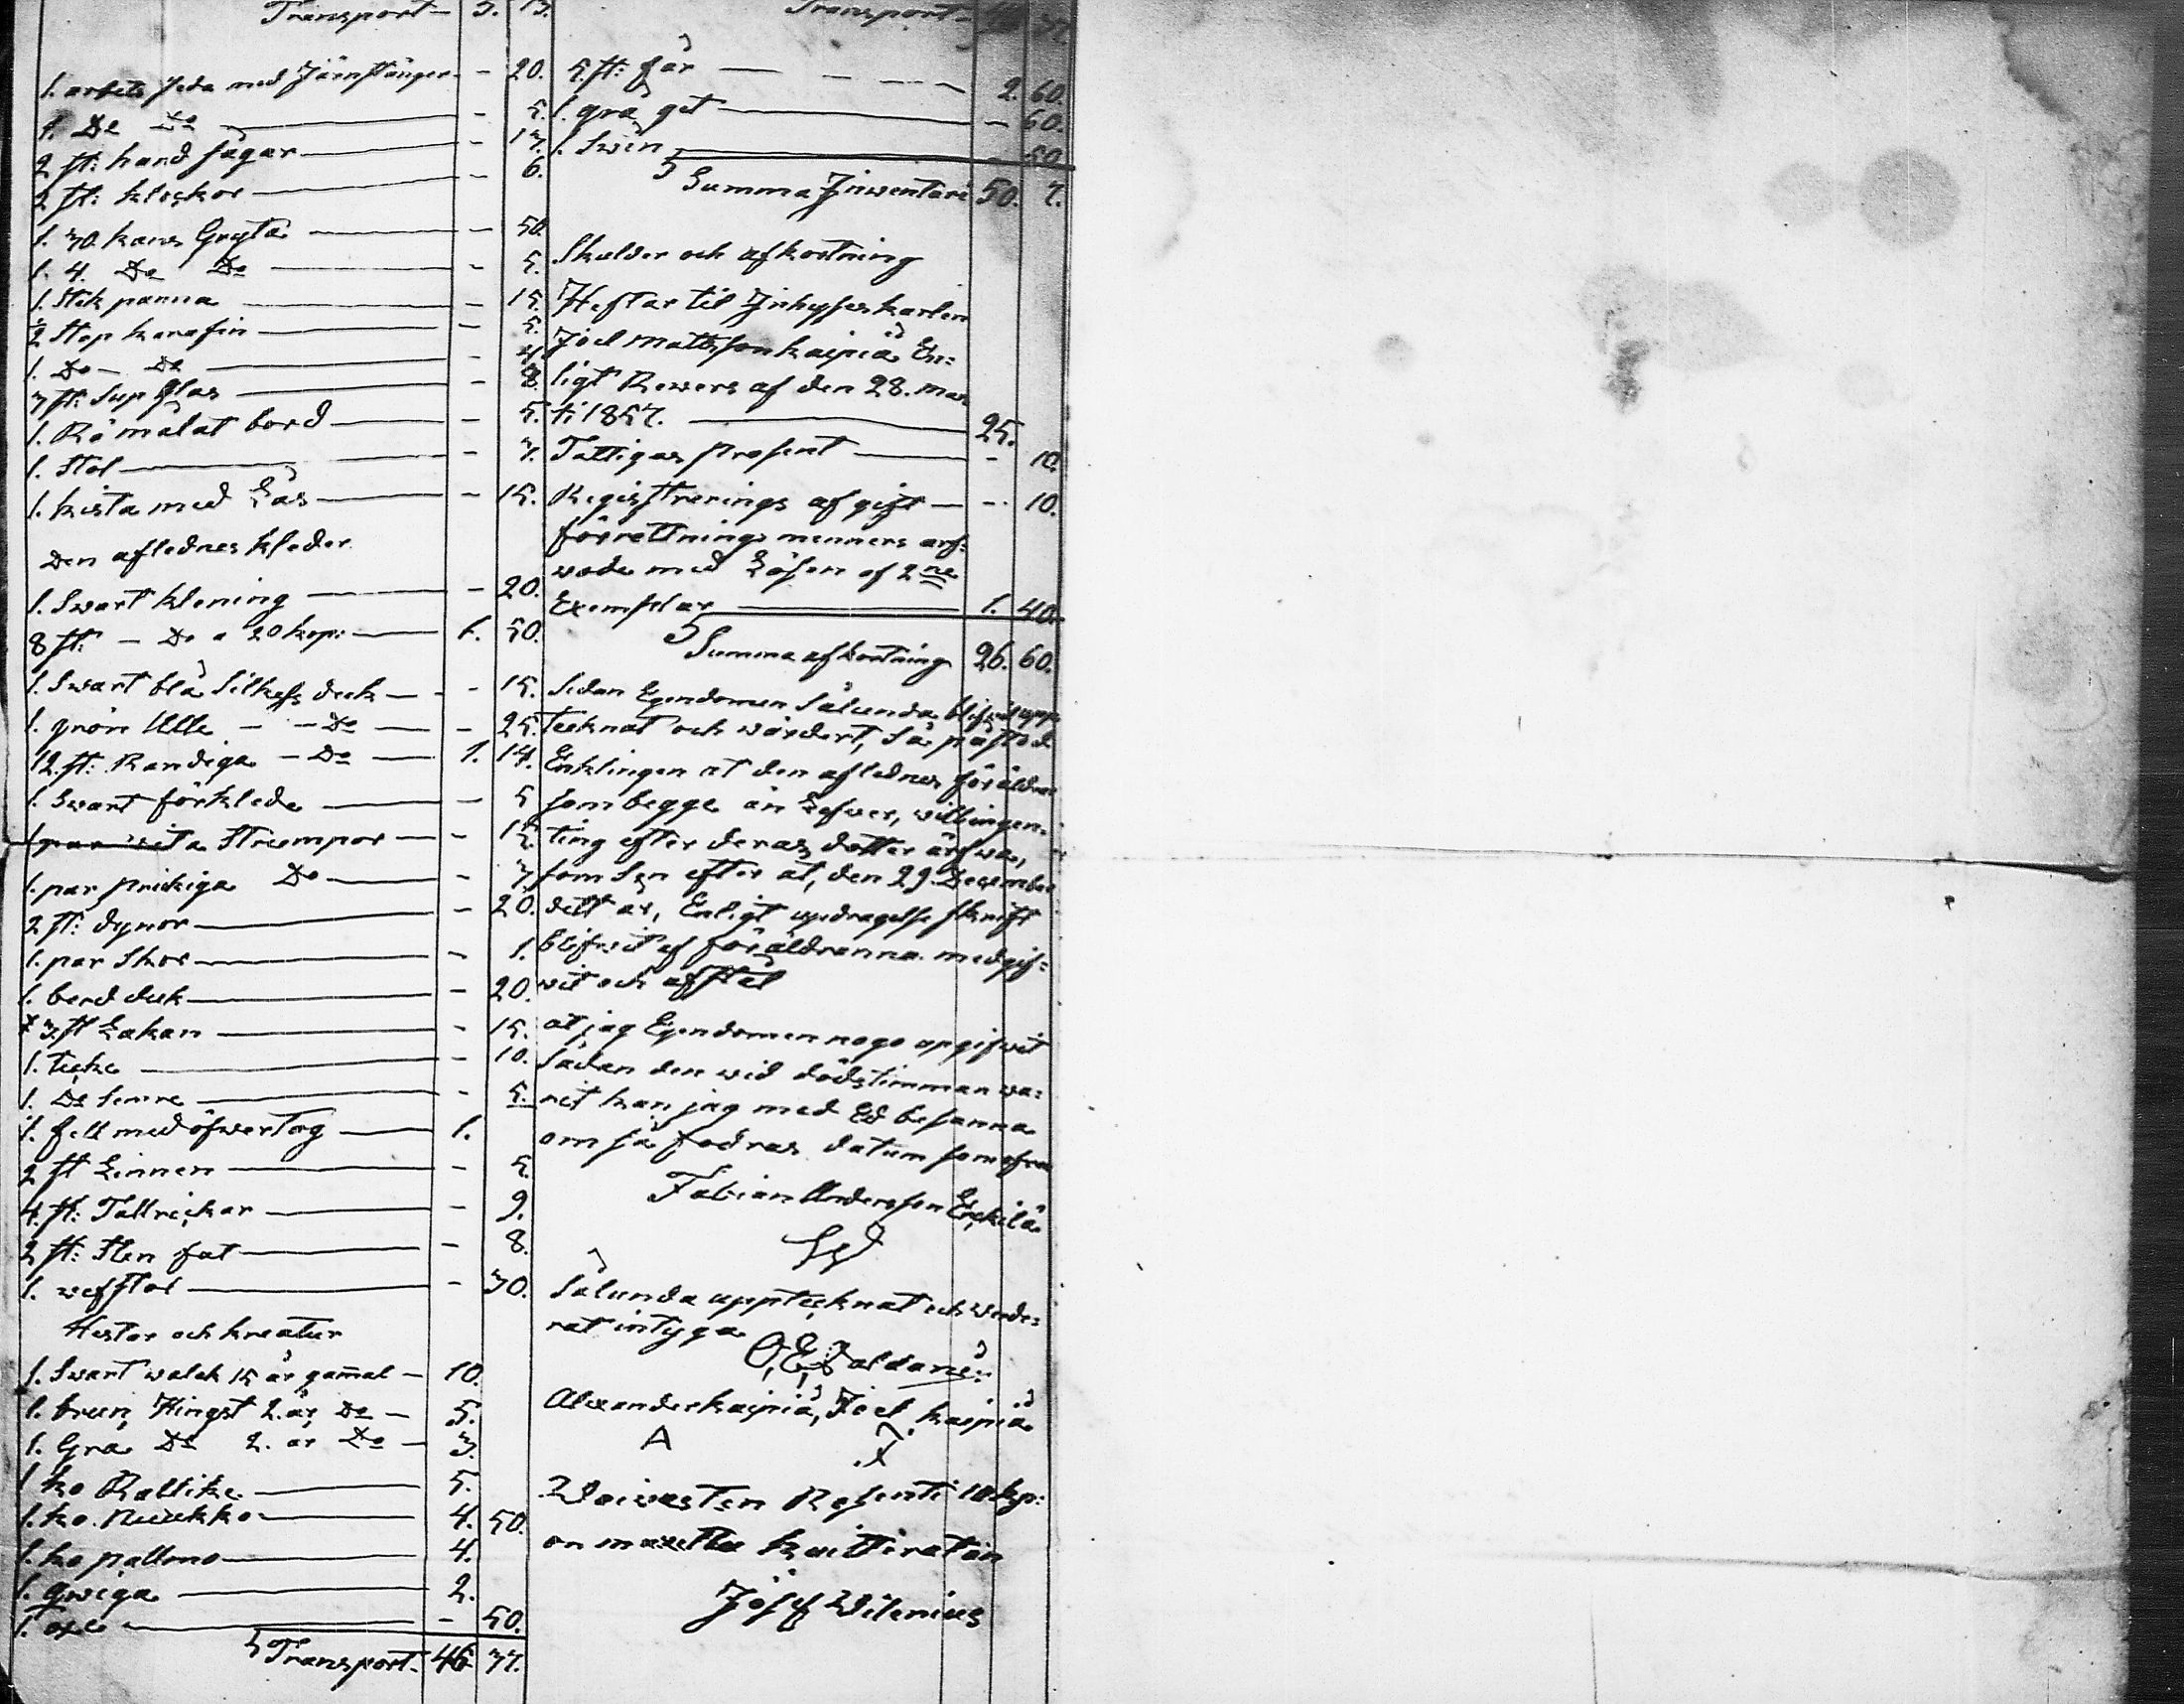 Transport 5. 13.
1. arbets seda med Järnstänger - 20.
1. De Do - 5.
2 st: hand sågar - 17.
2 st: klockor - 6.
1. 30. kans Gryta - 50.
1. 4. Do Do - 5.
1. Stek panna - 15.
1/2 Stop karafin - 5.
1. Do - Do - 4.
3 st: Sup glas - 8.
1. Rö målat bord - 5.
1. Stol - 3.
1. kista med Lås - 15.
Den aflednes kleder
1. Swart klening - 20.
8 st: - Do a 20 kop: 1. 50.
1. Swart blå Silkess deck - 15.
1. grön Ulle - Do - 25.
12. st: Randiga - Do 1. 14.
1. Swart förklede - 5
1 par wita Strumpor - 15.
1. par prickiga Do - 3
2 st: dynor - 20.
1. par Skor - 1.
1. bord duk - 20.
3. st Lakan - 15.
1. tecke - 10.
1. Do semre - 5.
1. fell med öfwertog 1.
2 st Linnen - 5.
4. st: Tallrickar - 9.
2 st: Sten fat - 8.
1. wefstol - 30.
Hestar och kreatur
1. Swart walak 15 år gammal - 10.
1. brun Hingst 2. år Do - 5.
1. Grå Do 2. år Do - 3.
1 ko Rallike 5.
1. ko Muukko 4. 50.
1. ko pallmo 4.
1. qwiga 2.
1. oxe - 50.
Transport. 46 37.
Transport 46 37.
5. st: får 2. 60.
1. grå get - 60.
1. Swin - 50
Summa Inwentarie 50. 7.
Skulder och afkortning
Heftar til Inhysseskarlen
Joel Mattsson kaipiå En-
ligt Rewers af den 28. Mar
ti 1857. 25.
Fattigas prosent - 10.
Registrerings afgift - 10.
förrettnings menners arf-
wode med Lösen af 2ne
Exemplar 1. 40.
Summa afkortning 26. 60.
Sedan Egendomen Sålunda blifwit upp
tecknat och wärdert, så påstod
Enklingen at den aflednes föräldrar
som begge än Lefwer, will ingen-
ting efter deras dotter ärfwa,
som Sen efter at, den 29 December
dett år, Enligt updragelse skrift
blifwit af föräldranna medgif-
wit och afstål
at jag Egendomen noga upgifwit
Sådan den wid dödstimman wa-
rit kan jag med Ed besanna
om så fodras datum som ofwan
Fabian Andersson Erekilä
Sålunda upptecknat och werde-
rat intyga
Alexander kaipiå, Joel kaipiå
A
Waiwasten Rosenti 10. kp:
on maxettu kuittiratan
Josef Wilenius